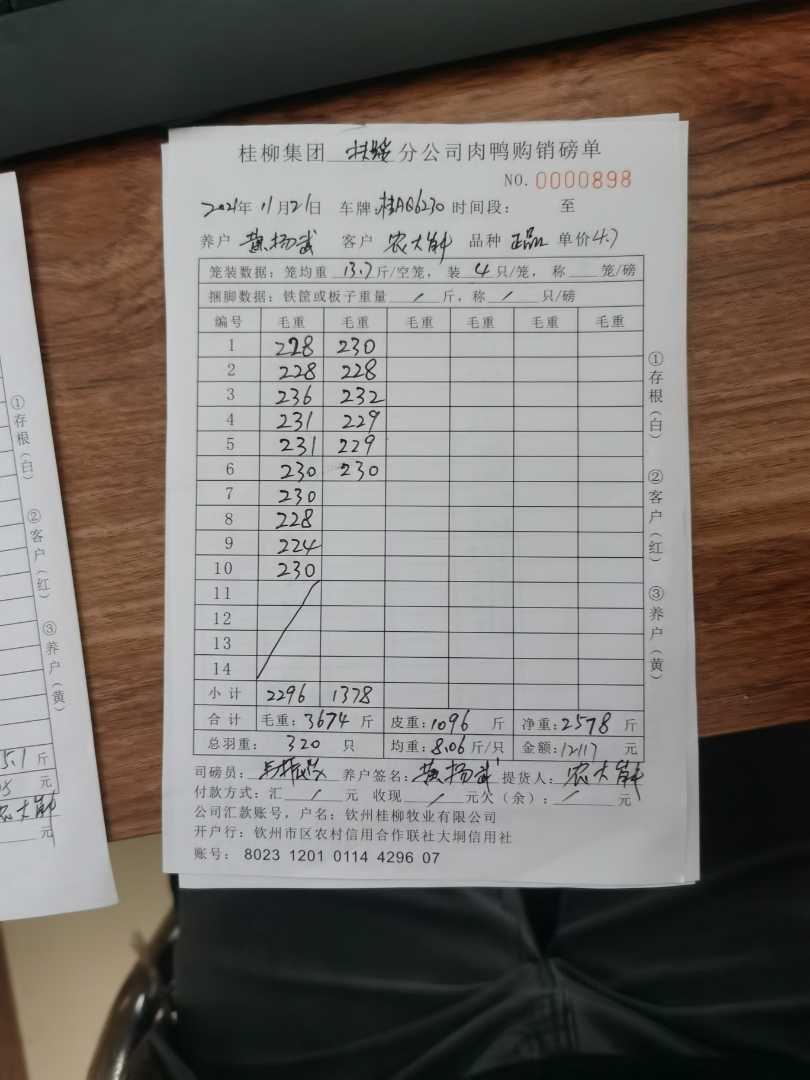 桂柳集团 扶绥 分公司肉鸭购销磅单
NO. 0000898
2021年11月21日 车牌:桂AQ6230 时间段： 至
养户 黄扬武 客户 农大 品种 正品 单价4.7
笼装数据：笼均重 13.7 斤/空笼，装 4 只/笼，称 笼/磅
捆脚数据：铁筐或板子重量 / 斤，称 / 只/磅
编号 毛重 毛重 毛重 毛重 毛重 毛重
1 228 230
2 228 228
3 236 232
4 231 229
5 231 229
6 230 230
7 230
8 228
9 224
10 230
11
12
13
14
小计 2296 1378
合计 毛重：3674 斤 皮重：1096 斤 净重：2578 斤
总羽重： 320 只 均重：8.06 斤/只 金额：12117 元
司磅员： 养户签名：黄扬武 提货人：农大
付款方式：汇 / 元 收现 / 元欠（余）： / 元
公司汇款账号，户名：钦州桂柳牧业有限公司
开户行：钦州市区农村信用合作联社大垌信用社
账号： 8023 1201 0114 4296 07
①存根（白）
②客户（红）
③养户（黄）
①存根（白）
②客户（红）
③养户（黄）
5.1 斤
元
农大
元